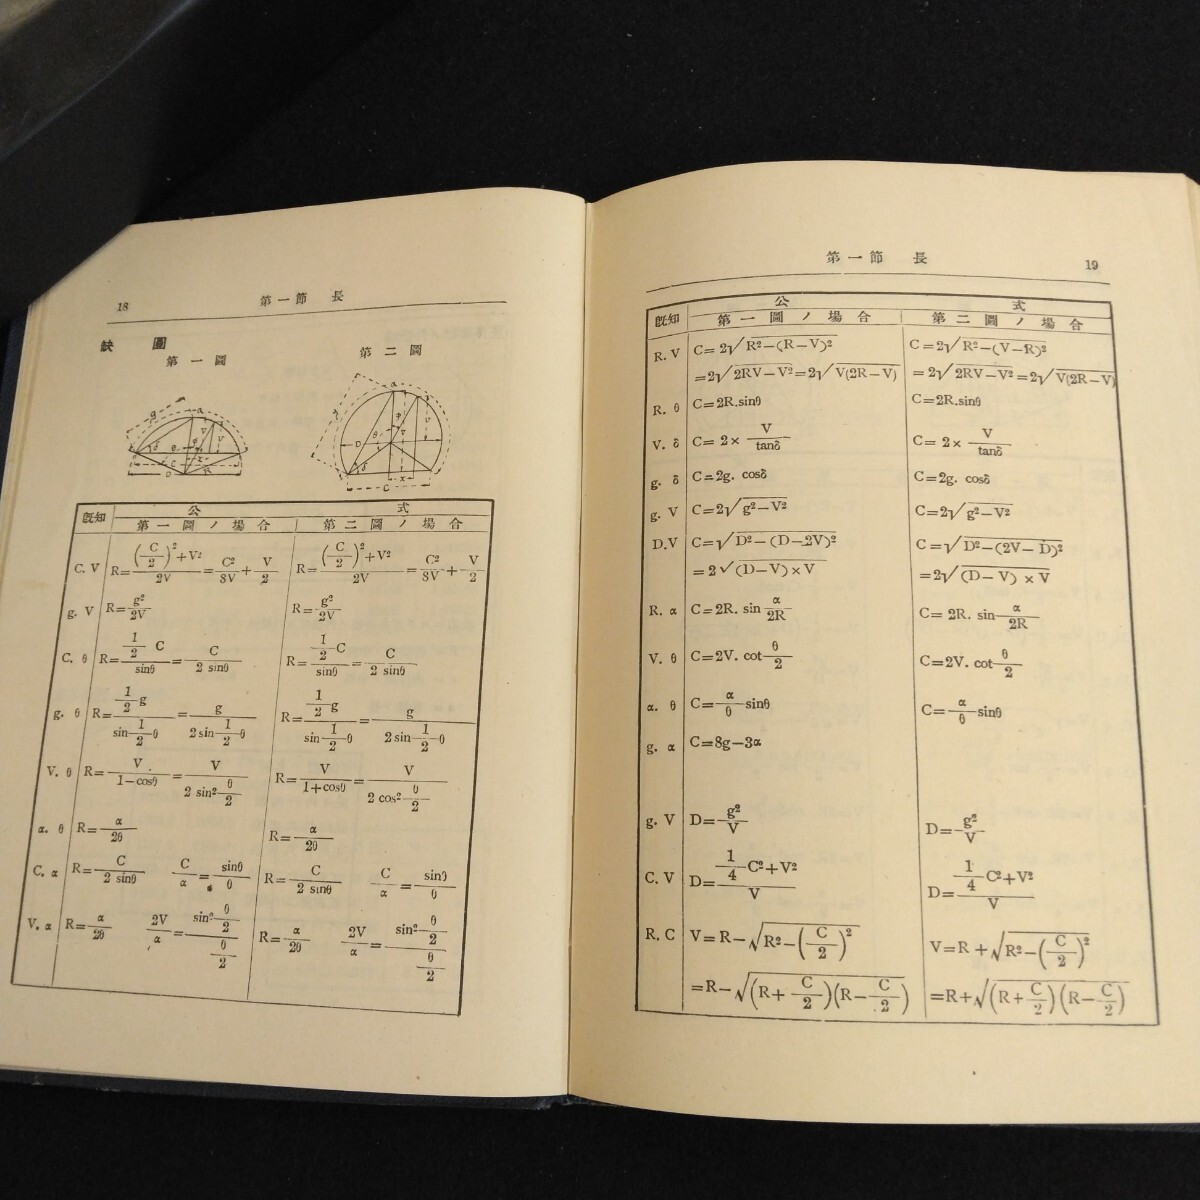 18 第一節 長
缺圓
第一圖 第二圖
既知 公式
第一圖ノ場合 第二圖ノ場合
C. V R=((C/2)²+V²)/2V=C²/8V+V/2 R=((C/2)²+V²)/2V=C²/8V+V/2
g. V R=g²/2V R=g²/2V
C. θ R=(1/2 C)/sinθ=C/2 sinθ R=(1/2 C)/sinθ=C/2 sinθ
g. θ R=(1/2 g)/(sin 1/2 θ)=g/(2 sin 1/2 θ) R=(1/2 g)/(sin 1/2 θ)=g/(2 sin 1/2 θ)
V. θ R=V/(1−cosθ)=V/(2 sin² θ/2) R=V/(1+cosθ)=V/(2 cos² θ/2)
α. θ R=α/2θ R=α/2θ
C. α R=C/2 sinθ C/α=sinθ/θ R=C/2 sinθ C/α=sinθ/θ
V. α R=α/2θ 2V/α=(sin² θ/2)/(θ/2) R=α/2θ 2V/α=(sin² θ/2)/(θ/2)
第一節 長 19
既知 公式
第一圖ノ場合 第二圖ノ場合
R. V C=2√R²−(R−V)² C=2√R²−(V−R)²
=2√2RV−V²=2√V(2R−V) =2√2RV−V²=2√V(2R−V)
R. θ C=2R.sinθ C=2R.sinθ
V. δ C=2×V/tanδ C=2×V/tanδ
g. δ C=2g. cosδ C=2g. cosδ
g. V C=2√g²−V² C=2√g²−V²
D.V C=√D²−(D−2V)² C=√D²−(2V−D)²
=2√(D−V)×V =2√(D−V)×V
R. α C=2R. sin α/2R C=2R. sin α/2R
V. θ C=2V. cot θ/2 C=2V. cot θ/2
α. θ C=α/θ sinθ C=α/θ sinθ
g. α C=8g−3α
g. V D=g²/V D=g²/V
C. V D=(1/4 C²+V²)/V D=(1/4 C²+V²)/V
R. C V=R−√R²−(C/2)² V=R+√R²−(C/2)²
=R−√(R+C/2)(R−C/2) =R+√(R+C/2)(R−C/2)